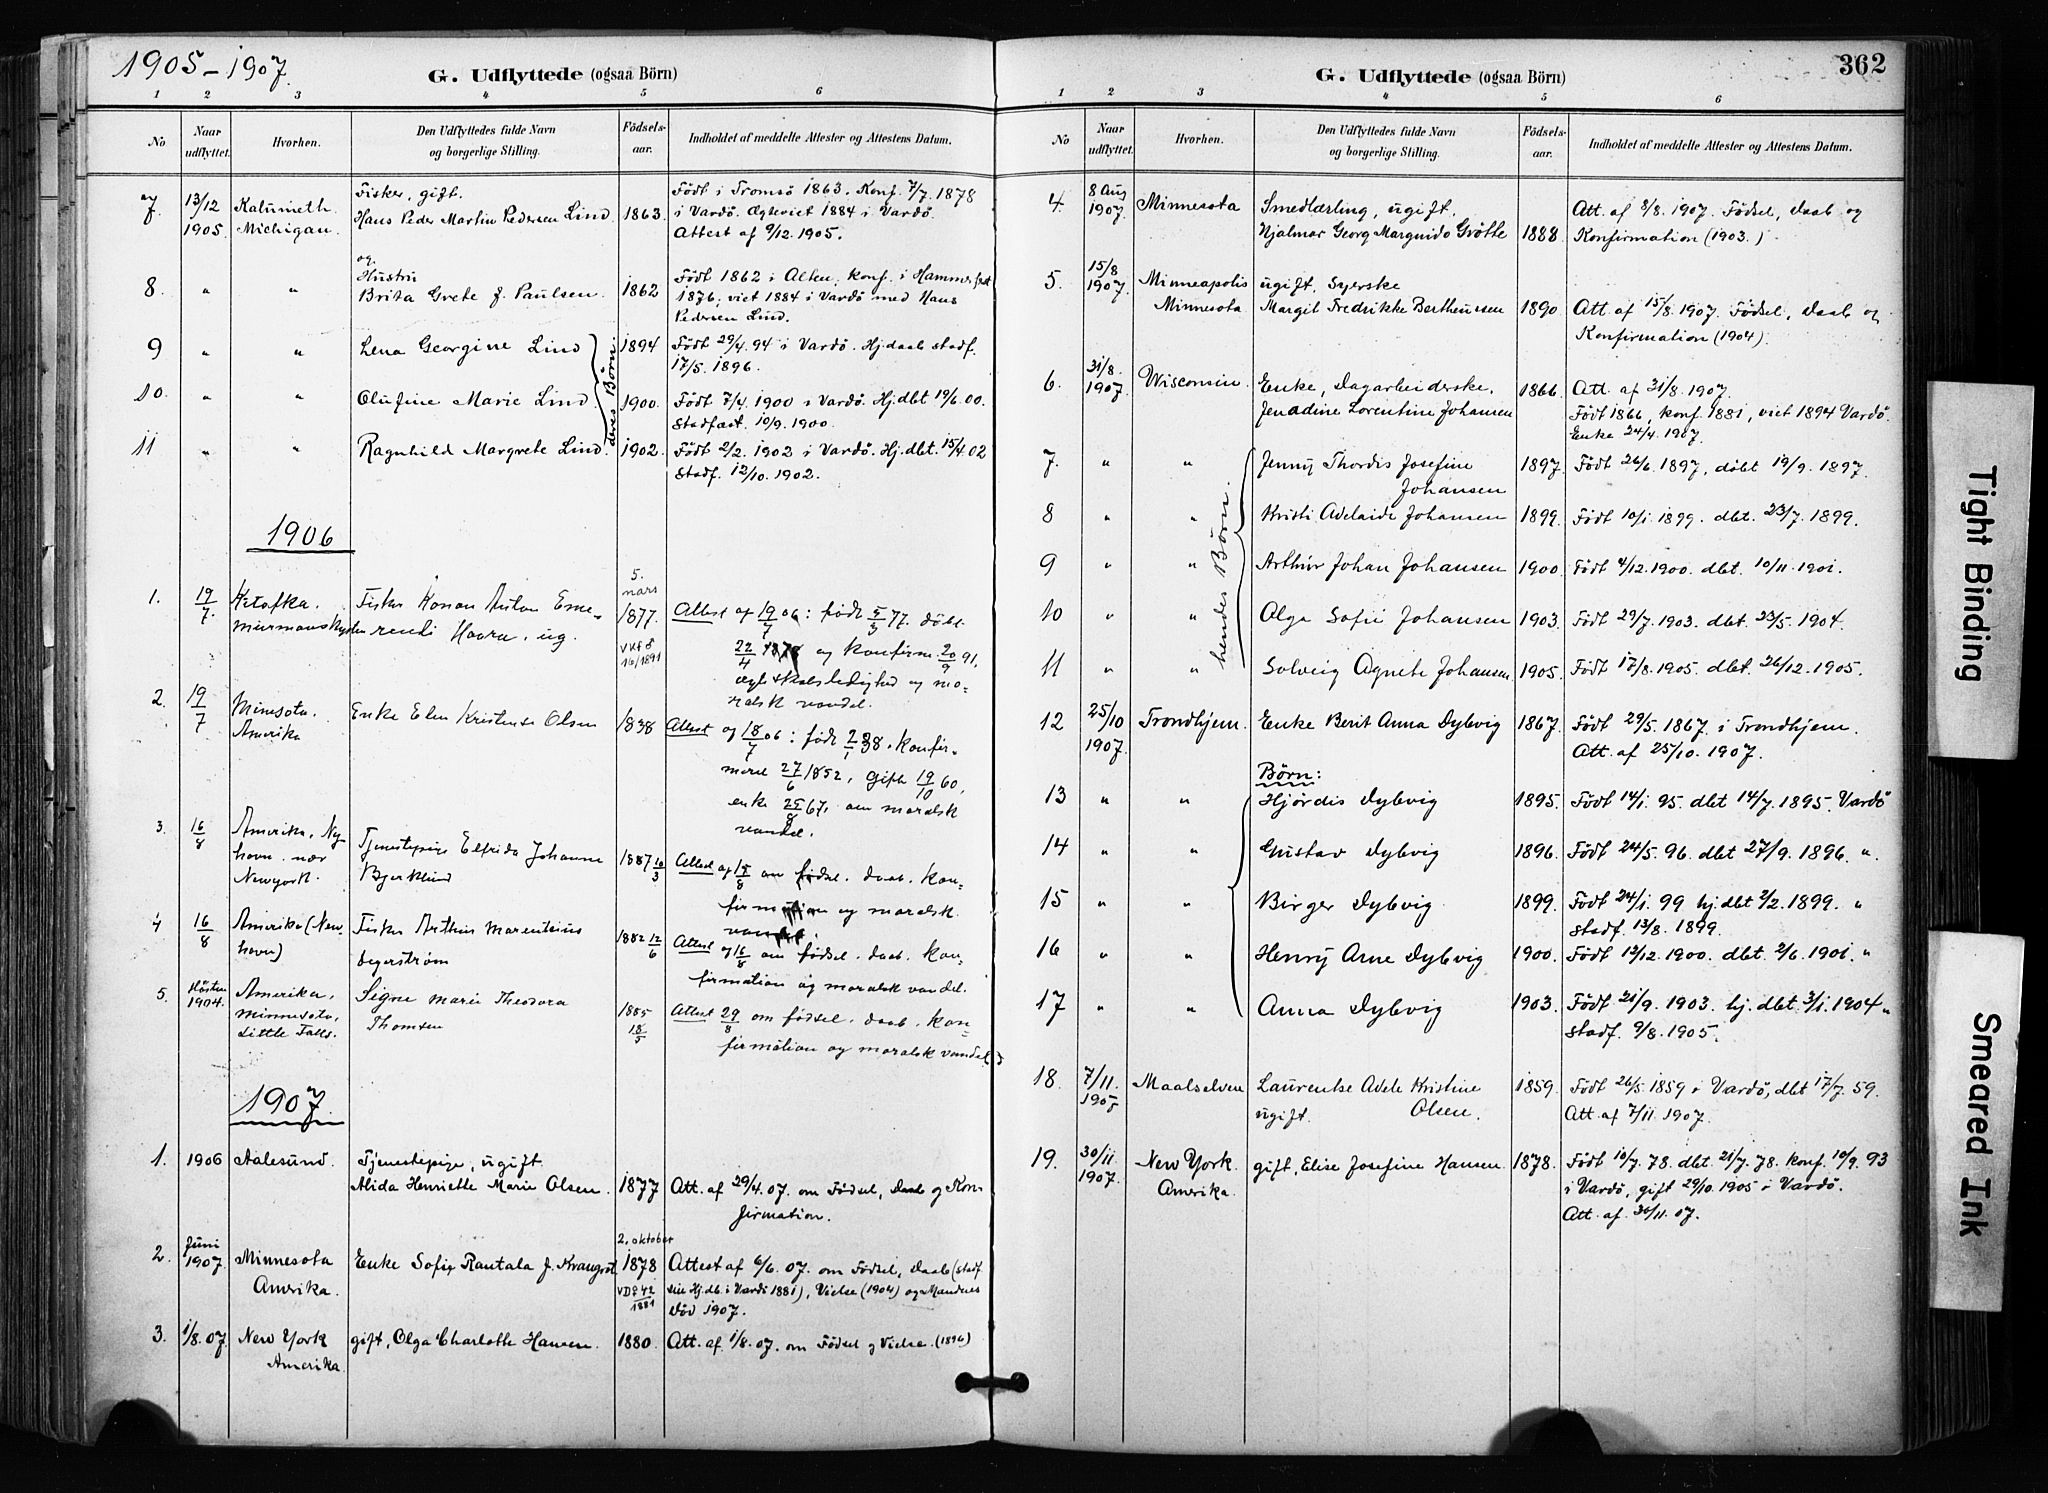 1905-1907.
G. Udflyttede (ogsaa Börn)
1 2 3 4 5 6
No
Naar udflyttet.
Hvorhen.
Den Udflyttedes fulde Navn og borgerlige Stilling.
Födselsaar.
Indholdet af meddelte Attester og Attestens Datum.
7. 13/12 1905. Kalumeth. Michigan.
Fisker, gift.
Hans Peder Martin Pedersen Lind. 1863.
Födt i Tromsö 1863. Konf. 7/7. 1878
i Vardö. Ægteviet 1884 i Vardö.
Attest af 9/12. 1905.
8. " "
og
Hustru
Brita Grete f. Paulsen. 1862
Födt 1862 i Alten, konf. i Hammerfest
1876; viet 1884 i Vardö med Hans
Pedersen Lind.
9 " " Lena Georgine Lind 1894
Födt 29/4. 94 i Vardö. Hj. daab stadf.
17/5. 1896.
10. " " Olufine Marie Lind. 1900.
Födt 7/4. 1900 i Vardö. Hj. dbt 19/6. 00.
Stadfæst. 10/9. 1900.
11 " " Ragnhild Margrete Lind. 1902.
Födt 2/2. 1902 i Vardö. Hj. dbt. 15/4. 02
Stadf. 12/10. 1902.
deres Börn.
1906
1. 19/7. Fisker Konon Anton
Haara. ug.
5. mars
1877.
Attest af 19/7 06: født 5/3 77. døbt
22/4 og konfirm. 20/9 91,
moralsk vandel.
2. 19/7 Minesota. Amerika
Enke Elen Kristense Olsen 1838
Attest af 18/7 06: født 2/1 38. konfirmeret 27/6 1852, gift 19/10 60,
enke 25/8 67, om moralsk
vandel.
3. 16/8 Amerika. Nyhavn. nær Newyork.
Tjenestepige Elfrida Johanne
Bjerklund
1887 10/3
Attest af 15/8 om fødsel. daab. konfirmation og moralsk.
vandel.
4 16/8 Amerika (Newhavn)
Fisker Arthur Marentsius
Segerstrøm
1882 12/6
Attest af 16/8 om fødsel. daab. konfirmation og moralsk vandel.
5. Høsten 1904. Amerika. Minnesota, Little Falls.
Signe Marie Theodora
Thomsen
1885 18/5
Attest 29/8 om fødsel. daab. konfirmation og moralsk vandel
1907.
1. 1906 Aalesund.
Tjenestepige, ugift.
Alida Henriette Marie Olsen. 1877
Att. af 29/4. 07. om Födsel, Daab og Konfirmation.
2. Juni 1907. Minnesota Amerika.
Enke Sofie Rantala f. Krangrot
2. oktober
1878
Attest af 6/6. 07. om Födsel, Daab (stadf.
sin Hj.db. i Vardö 1881), Vielse (1904) og Mandens
Död 1907.
3. 1/8. 07. New York Amerika.
gift, Olga Charlotte Hansen. 1880.
Att. af 1/8. 07. om Födsel og Vielse. (1896)
362
G. Udflyttede (ogsaa Börn)
1 2 3 4 5 6
No
Naar udflyttet.
Hvorhen.
Den Udflyttedes fulde Navn og borgerlige Stilling.
Födselsaar.
Indholdet af meddelte Attester og Attestens Datum.
4. 8 Aug 1907. Minnesota
Smedlærling, ugift.
Hjalmar Georg Margnido Grötte 1888
Att. af 8/8. 1907. Födsel, Daab og
Konfirmation (1903.)
5. 15/8 1907. Minneapolis Minnesota
ugift, Syerske
Margit Fredrikke Bertheussen 1890.
Att. af 15/8. 1907. Födsel, Daab og
Konfirmation (1904).
6. 31/8. 1907. Wisconsin.
Enke, Dagarbeiderske.
Jenadine Lorentine Johansen 1866.
Att. af 31/8. 1907.
Födt 1866, konf. 1881, viet 1894 Vardö.
Enke 24/4. 1907.
7. " " Jenny Thordis Josefine
Johansen 1897.
Födt 26/6. 1897, döbt 19/9. 1897.
8 " " Kristi Adelaide Johansen 1899.
Födt 10/1. 1899. dbt. 23/7. 1899.
9 " " Arthur Johan Johansen 1900.
Födt 4/12. 1900. dbt. 10/11. 1901.
10 " " Olga Sofie Johansen 1903.
Födt 29/7. 1903. dbt. 23/5. 1904.
11 " " Solveig Agnete Johansen 1905.
Födt 17/8. 1905. dbt. 26/12. 1905.
hendes Börn.
12 25/10 1907. Trondhjem. Enke Berit Anna Dybvig 1867.
Födt 29/5. 1867. i Trondhjem.
Att. af 25/10. 1907.
Börn:
13 " " Hjördis Dybvig 1895.
Födt 14/1. 95. dbt 14/7. 1895. Vardö
14 " " Gustav Dybvig 1896.
Födt 24/5. 96. dbt 27/9. 1896. "
15 " " Birger Dybvig 1899.
Födt 24/1. 99 hj. dbt 2/2. 1899. "
Stadf. 13/8. 1899.
16 " " Henry Arne Dybvig 1900.
Födt 12/12. 1900. dbt. 2/6. 1901. "
17 " " Anna Dybvig 1903.
Födt 21/9. 1903. hj. dbt. 3/1. 1904 "
stadf. 9/8. 1905.
18. 7/11. Maalselven Laurentse Adele Kristine
ugift. Olsen. 1859.
Födt 26/5. 1859 i Vardö, dbt 17/7. 59.
Att. af 7/11. 1907.
19. 30/11 1907. New York. Amerika.
gift, Elise Josefine Hansen 1878.
Födt 10/7. 78. dbt. 21/7. 78. konf. 10/9. 93
i Vardö, gift 29/10. 1905 i Vardö.
Att. af 30/11. 07.
Tight Binding
Smeared Ink